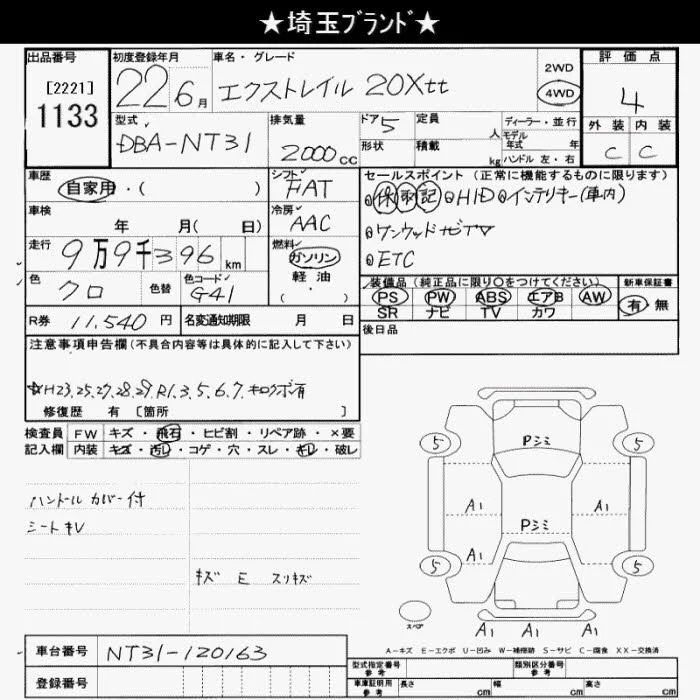 ★埼玉ﾌﾞﾗﾝﾄﾞ★
出品番号
[2221]
1133
初度登録年月
22 6月
車名・グレード
エクストレイル 20Xtt
2WD
4WD
評価点
4
外装 内装
C C
型式
DBA-NT31
排気量
2000cc
ドア 5
定員 人
形状
積載 kg
ディーラー・並行
モデル年式 年
ハンドル 左・右
車歴
自家用・( )
シフト
FAT
車検
年 月( 日)
冷房
AAC
走行
9万9千396km
燃料
ガソリン
軽油
( ・ )
色
クロ
色替
色コード
G41
R券 11,540円
名変通知期限 月 日
セールスポイント (正常に機能するものに限ります)
保 取 記 HID インテリキー(車内)
ワンウッド ナビTV
ETC
装備品 (純正品に限り○をつけてください)
PS PW ABS エアB AW
SR ナビ TV カワ
新車保証書
有・無
後日品
注意事項申告欄(不具合内容等は具体的に記入して下さい)
☆H23,25,27,28,29,R1,3,5,6,7,キロクボ有
修復歴 有 [箇所 ]
検査員記入欄
FW キズ・飛石・ヒビ割・リペア跡・×要
内装 キズ・汚レ・コゲ・穴・スレ・キレ・破レ
ハンドル カバー付
シート キレ
キズ E スリキズ
5 Pミミ 5
A1 A1
Pミミ
A1
5 5
スペア
A1 A1 A1
A-キズ E-エクボ U-凹み W-補修跡 S-サビ C-腐食 XX-交換済
車台番号 NT31-120163
登録番号
型式指定番号 参考
類別区分番号 参考
車庫証明用 参考
長さ cm 幅 cm 高さ cm